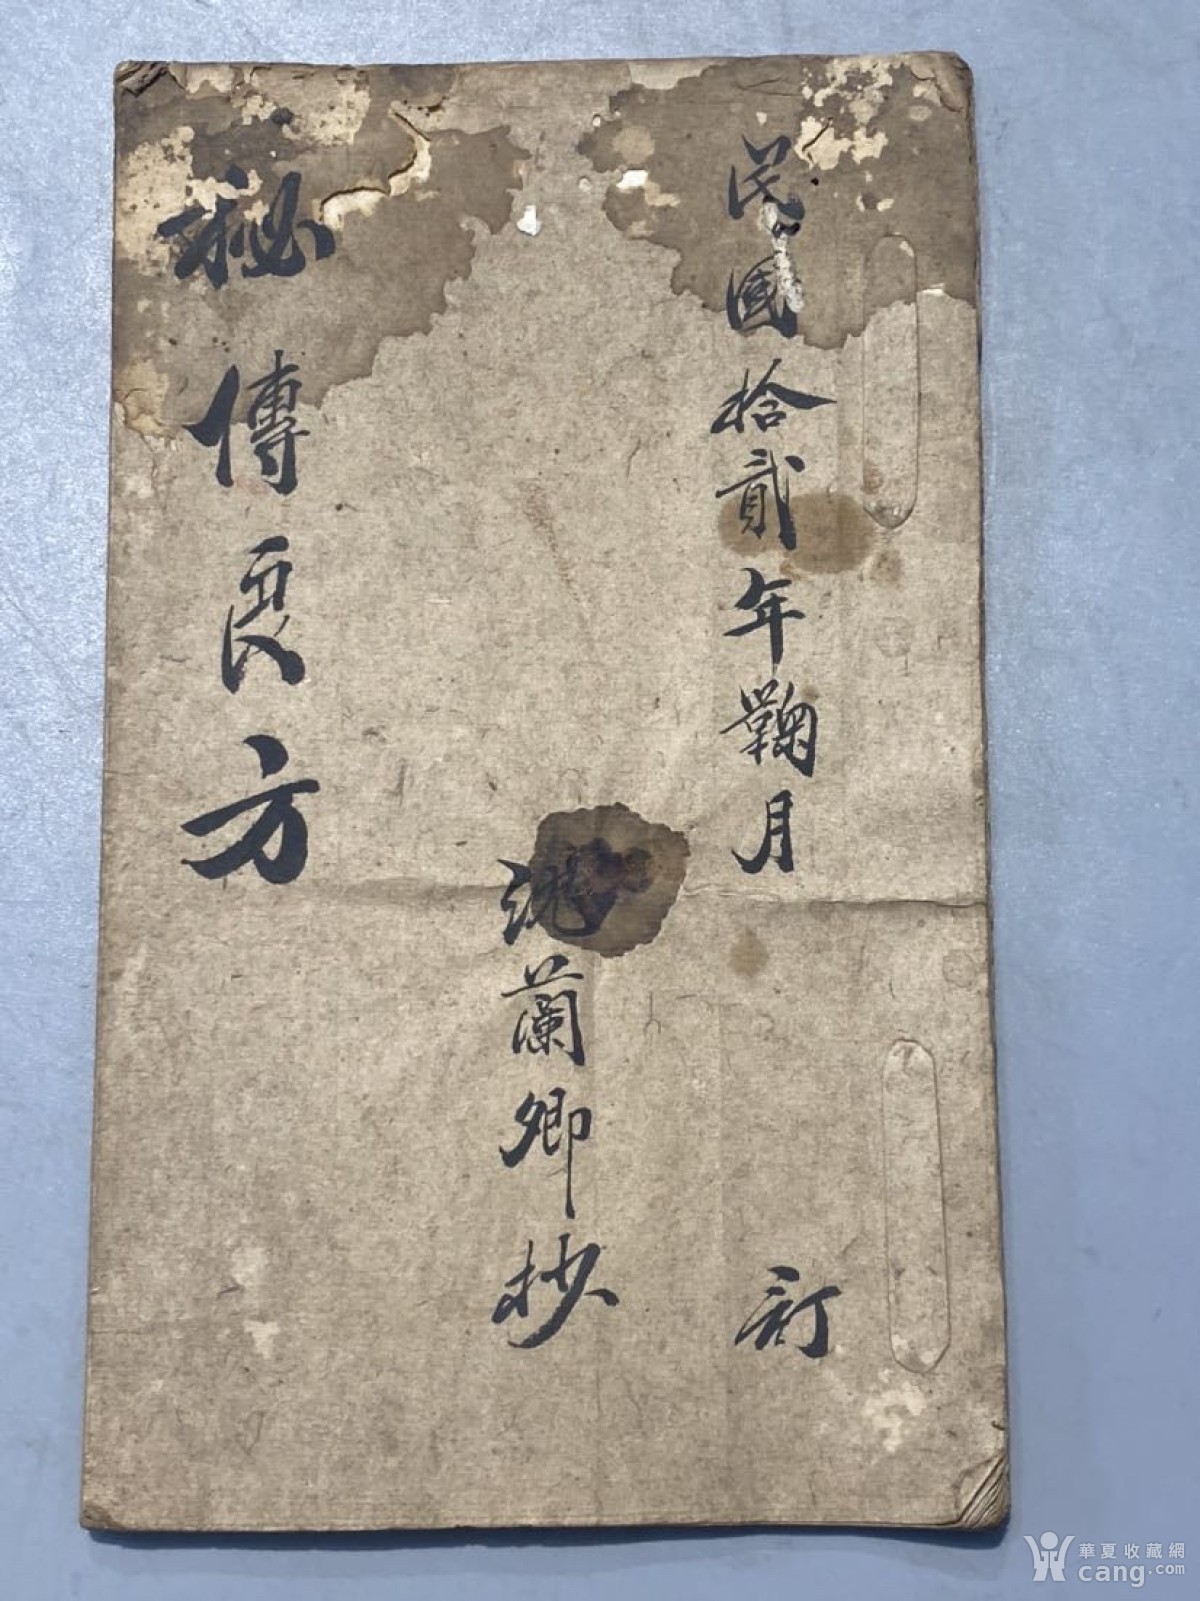 民國拾貳年鞠月 訂
蘭卿抄
秘傳良方
華夏收藏網
cang.com